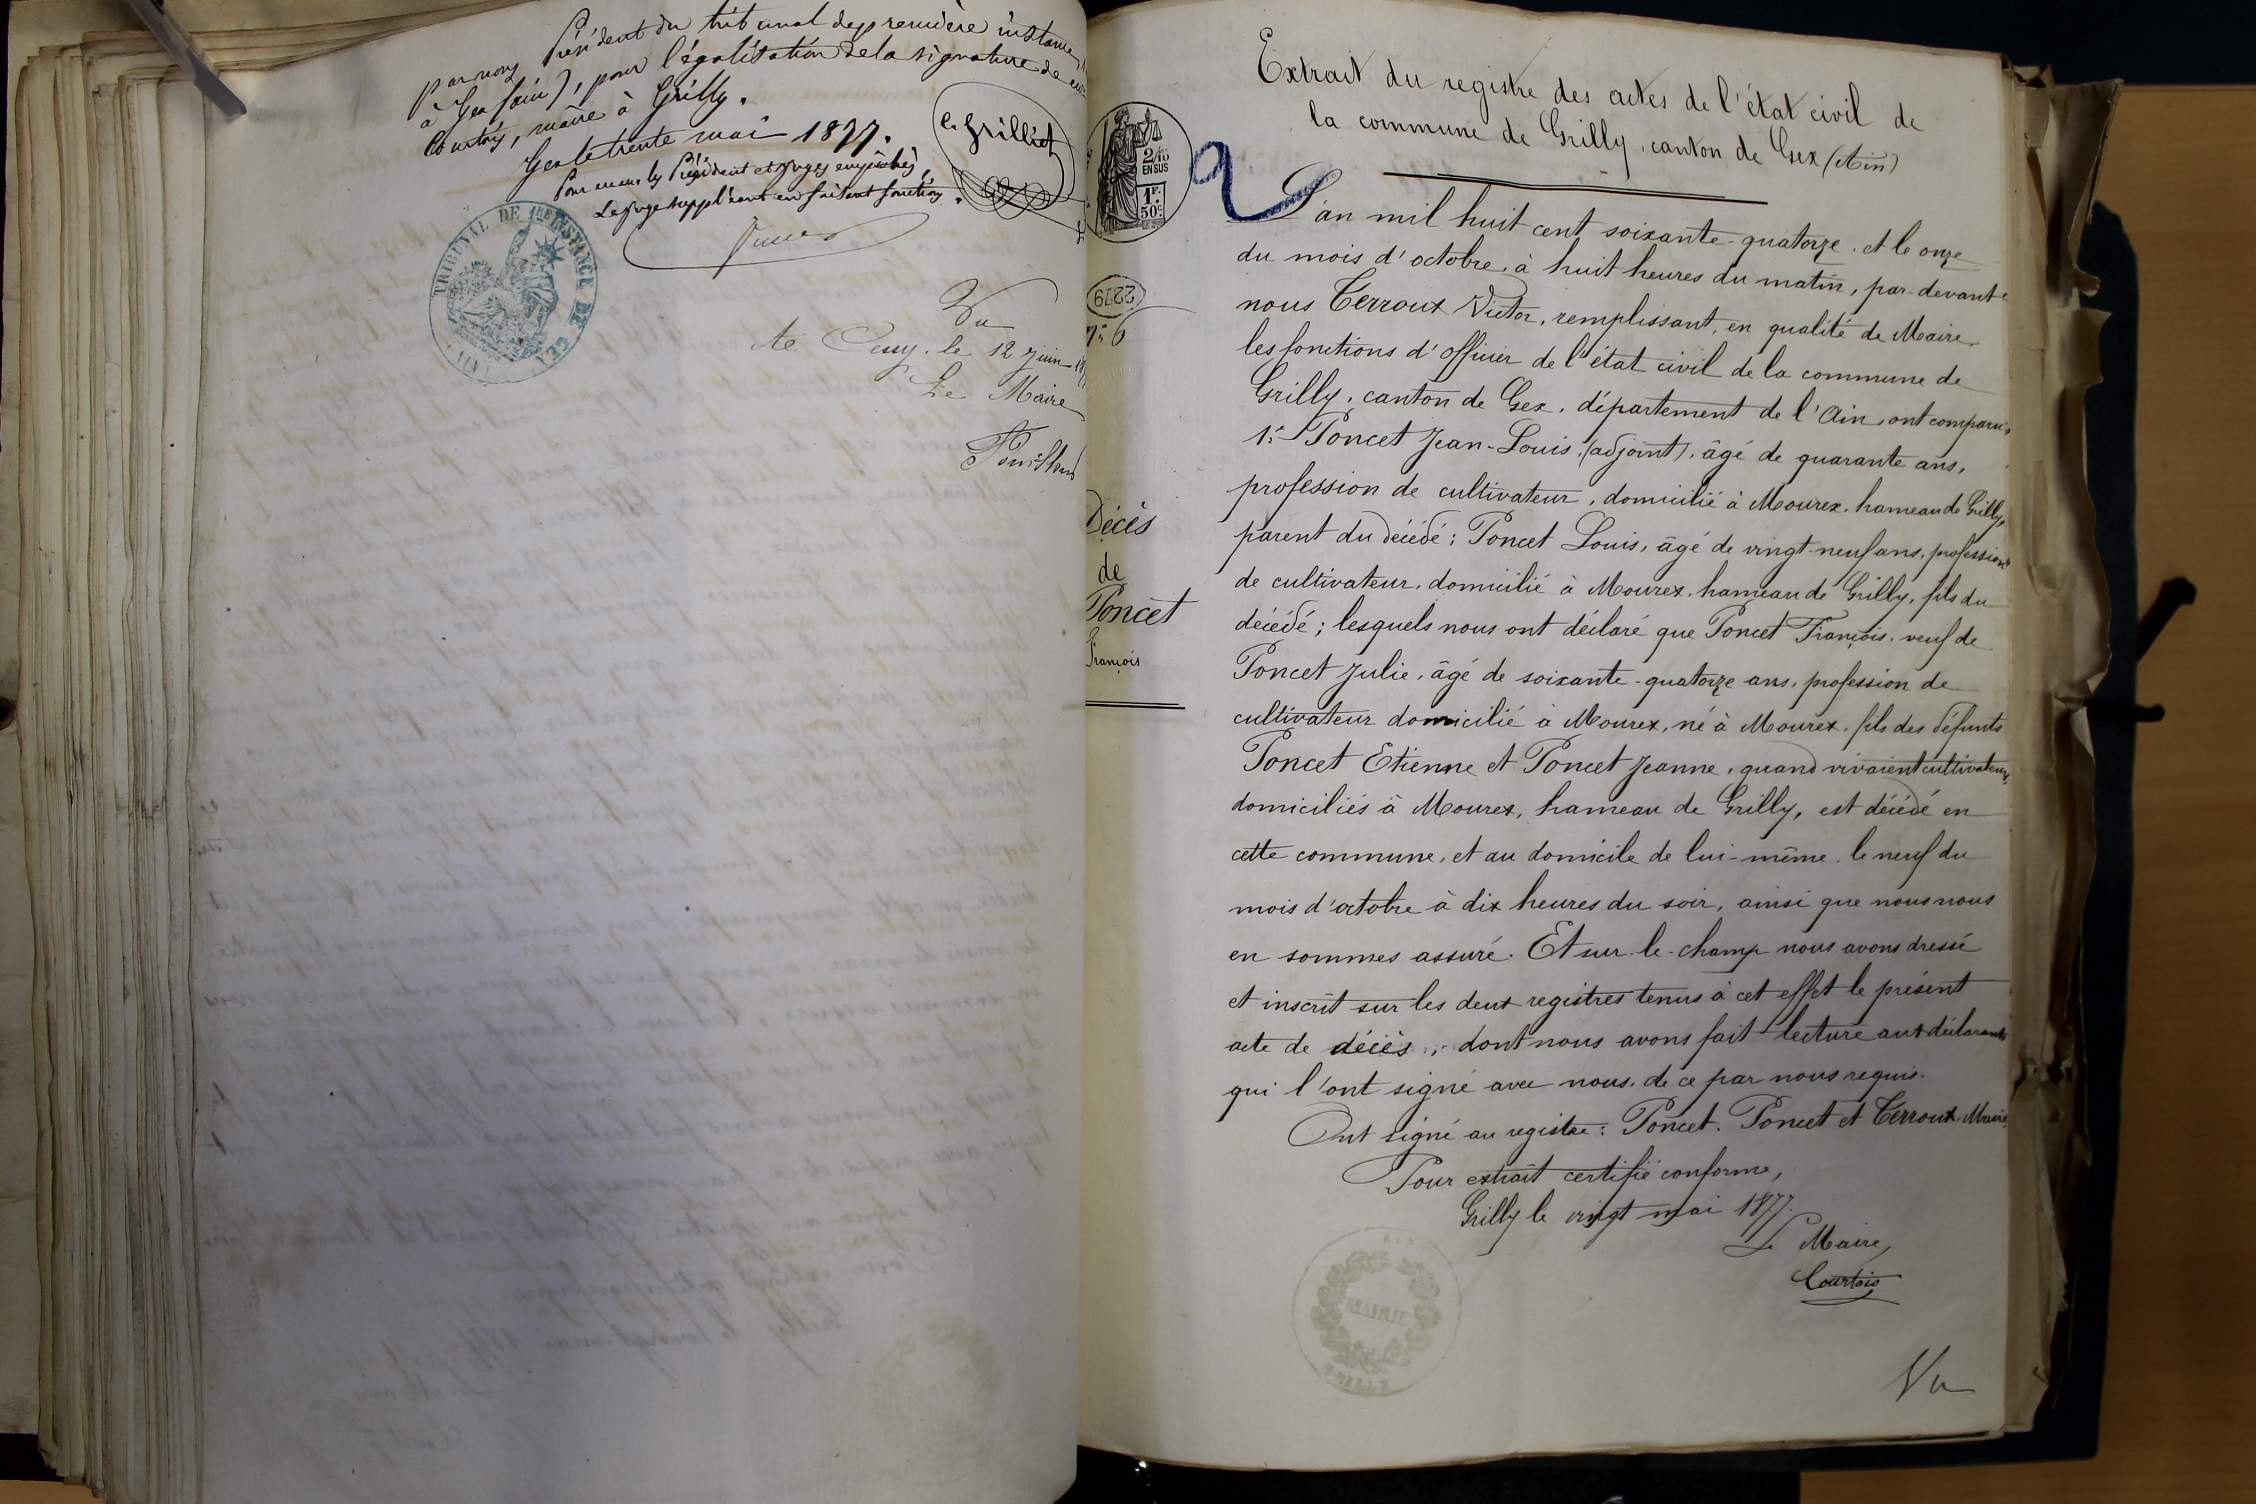 Par nous Président du tribunal de première instance
à Gex (ain), pour légalisation de la signature de
Courtois, maire à Grilly.
Gex le trente mai 1877.
Pour mm. les Président et Juges empêchés
Le Juge suppléant en faisant fonctions.
C. Grilliet
TRIBUNAL DE 1ERE INSTANCE DE GEX
(AIN)
Vu
le 12 juin
Le Maire
Extrait du registre des actes de l'état civil de
la commune de Grilly, canton de Gex (Ain)
2/10
EN SUS
1F.
50c
2219
No 6
Décès
de
Poncet
François
L'an mil huit cent soixante-quatorze et le onze
du mois d'octobre, à huit heures du matin, par-devant
nous Terroux Victor, remplissant, en qualité de Maire
les fonctions d'officier de l'état civil de la commune de
Grilly, canton de Gex, département de l'Ain, ont comparu,
1o Poncet Jean-Louis, (adjoint), âgé de quarante ans,
profession de cultivateur, domicilié à Mourex, hameau de Grilly,
parent du décédé; Poncet Louis, âgé de vingt-neuf ans, profession
de cultivateur, domicilié à Mourex, hameau de Grilly, fils du
décédé; lesquels nous ont déclaré que Poncet François, veuf de
Poncet Julie, âgé de soixante-quatorze ans, profession de
cultivateur domicilié à Mourex, né à Mourex, fils des défunts
Poncet Etienne et Poncet Jeanne, quand vivaient cultivateurs,
domiciliés à Mourex, hameau de Grilly, est décédé en
cette commune, et au domicile de lui-même le neuf du
mois d'octobre à dix heures du soir, ainsi que nous nous
en sommes assuré. Et sur-le-champ nous avons dressé
et inscrit sur les deux registres tenus à cet effet le présent
acte de décès, dont nous avons fait lecture aux déclarants
qui l'ont signé avec nous, de ce par nous requis.
Ont signé au registre: Poncet. Poncet et Terroux Maire.
Pour extrait certifié conforme,
Grilly le vingt mai 1877.
Le Maire,
Courtois
MAIRIE
GRILLY
Vu